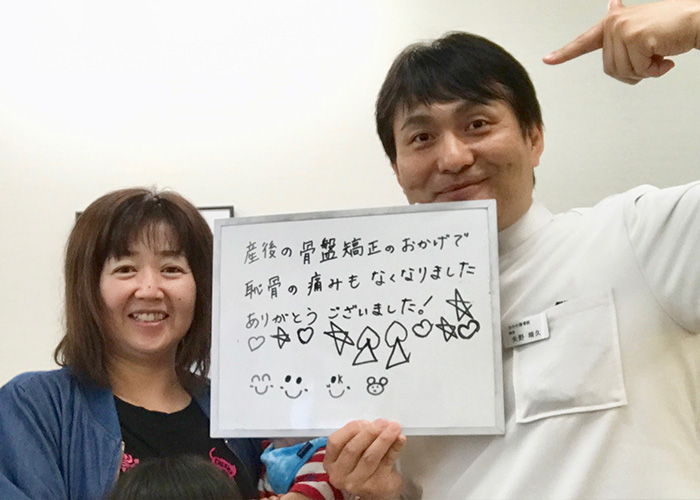 産後の骨盤矯正のおかげで
恥骨の痛みもなくなりました
ありがとうございました!
矢野 晴久